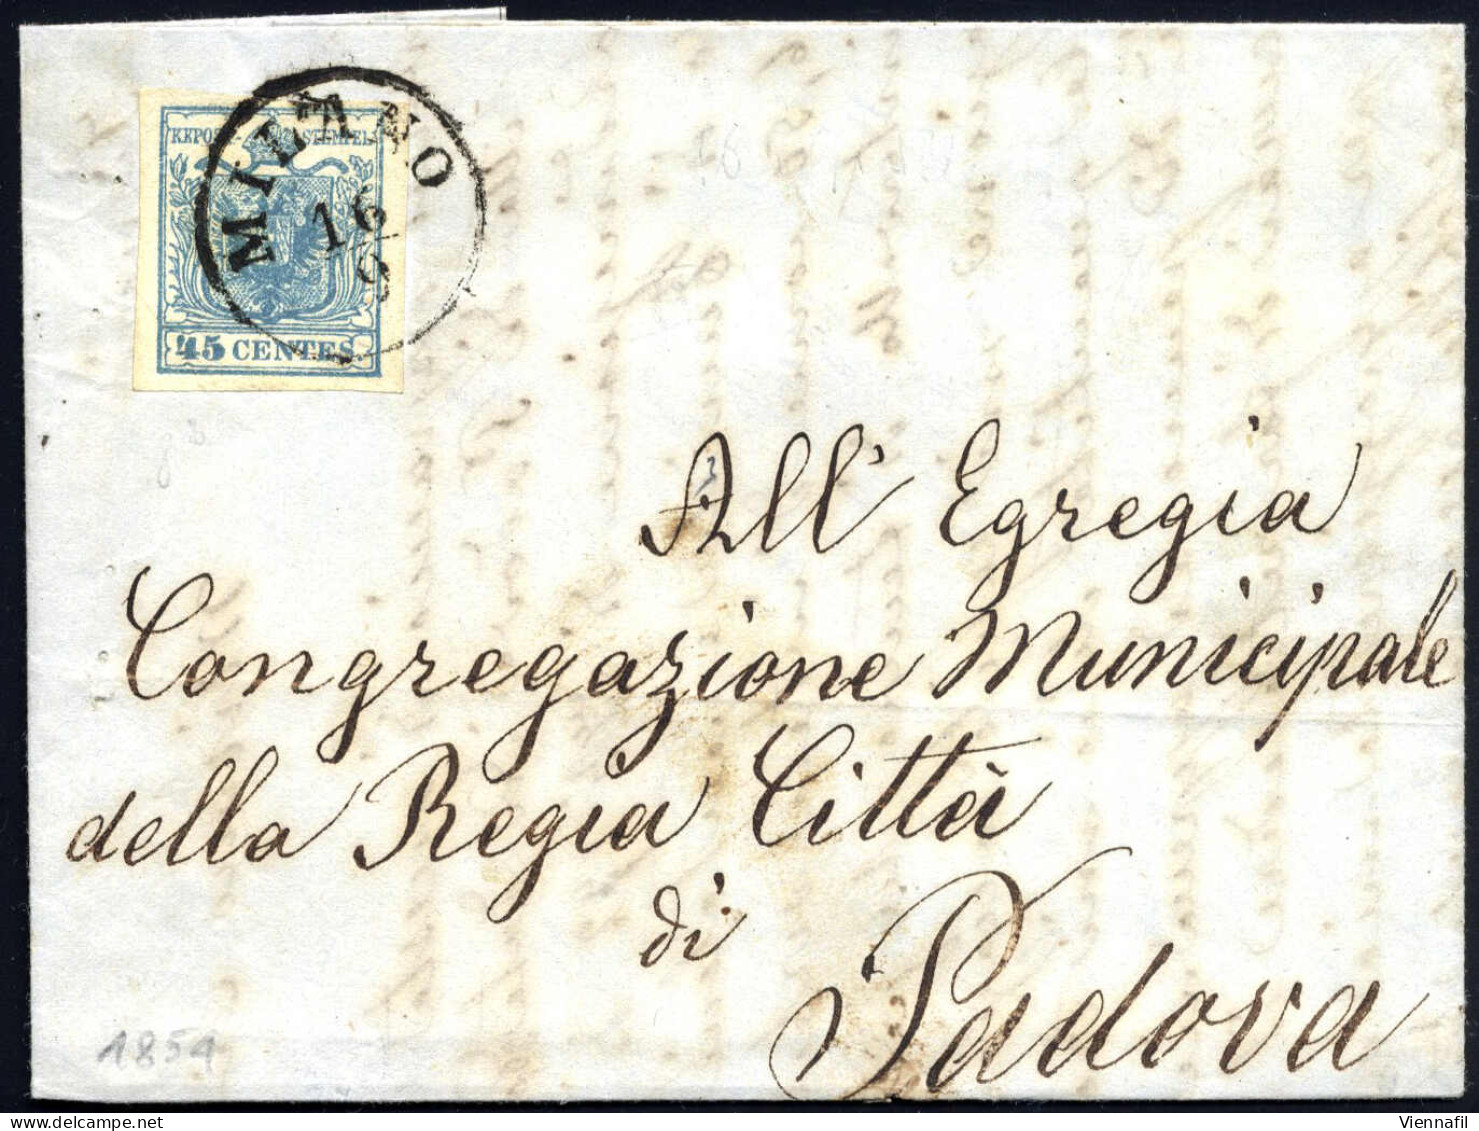 KKPOST-STEMPEL
MILANO
16
9
45 CENTES
All' Egregia
Congregazione Municipale
della Regia Città
di
Padova
1854
Viennafil